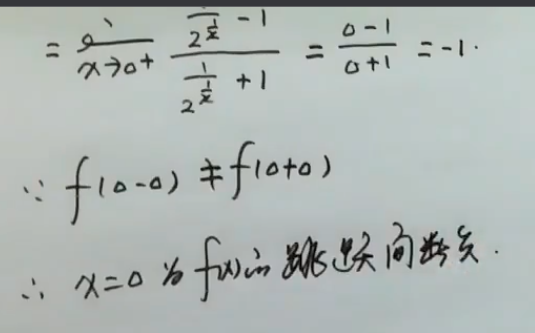 = lim x→0+ (1/2^(1/x) - 1)/(1/2^(1/x) + 1) = (0-1)/(0+1) = -1.
∵ f(0-0) ≠ f(0+0)
∴ x=0 为 f(x) 的跳跃间断点.